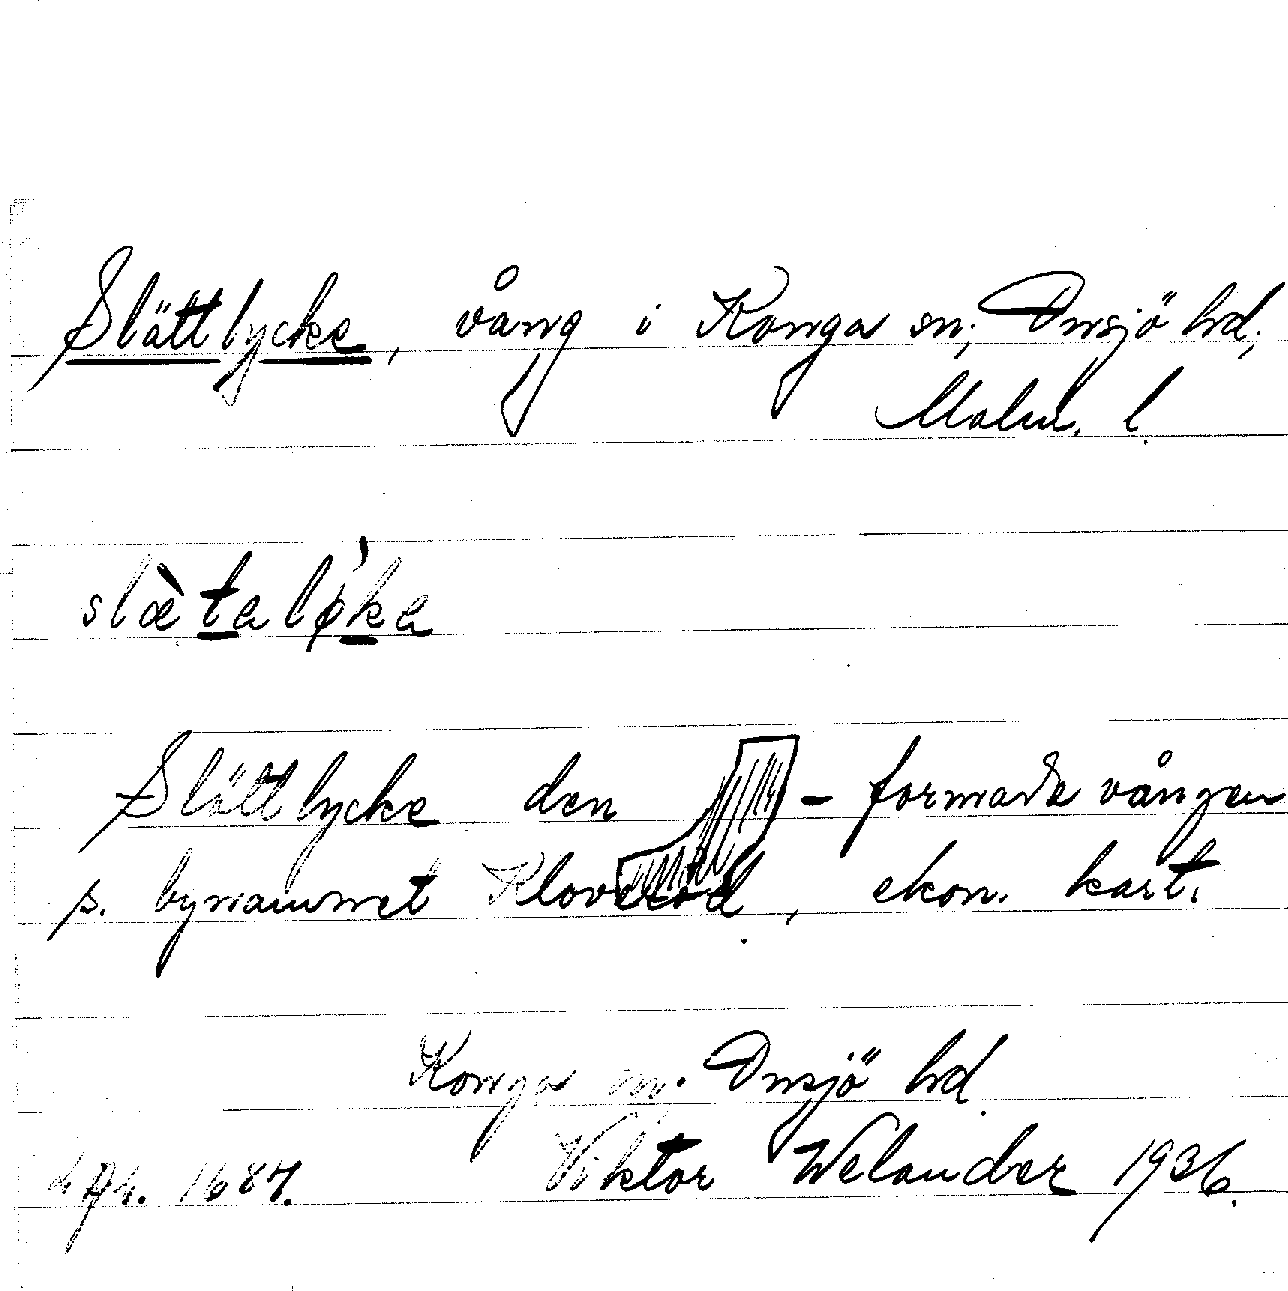 Slättlycke, vång i Konga sn; Onsjö hd;
Malm. l.
slæ̀taló̷ka
Slättlycke den - formade vången
p. bynamnet Kloveröd, ekon. kart.
Konga sn. Onsjö hd
1687. Viktor Welander 1936.